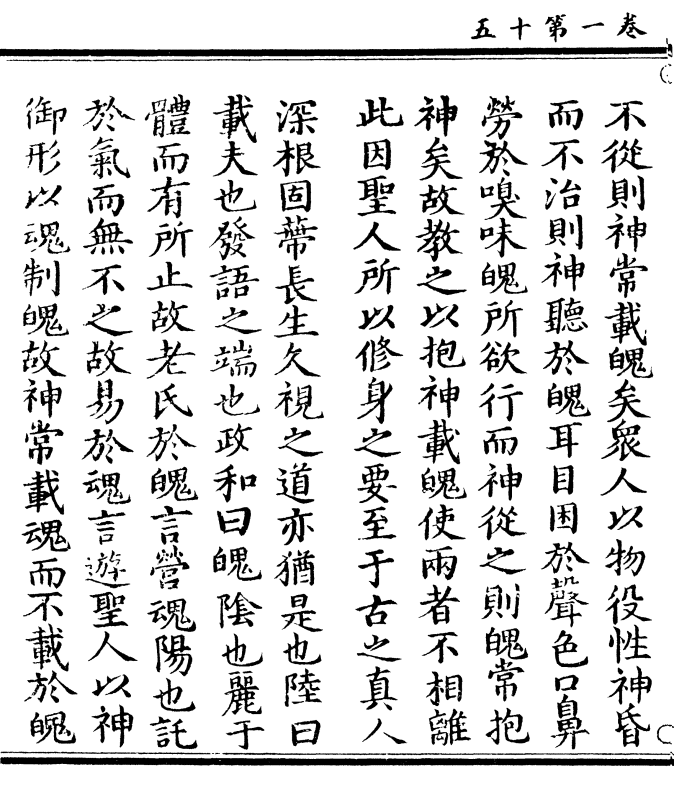 卷一第十五
不從則神常載魄矣衆人以物役性神昏
而不治則神聽於魄耳目困於聲色口鼻
勞於嗅味魄所欲行而神從之則魄常抱
神矣故教之以抱神載魄使兩者不相離
此因聖人所以修身之要至于古之真人
深根固蔕長生久視之道亦猶是也陸曰
載夫也發語之端也政和曰魄陰也麗于
體而有所止故老氏於魄言營魂陽也託
於氣而無不之故易於魂言遊聖人以神
御形以魂制魄故神常載魂而不載於魄